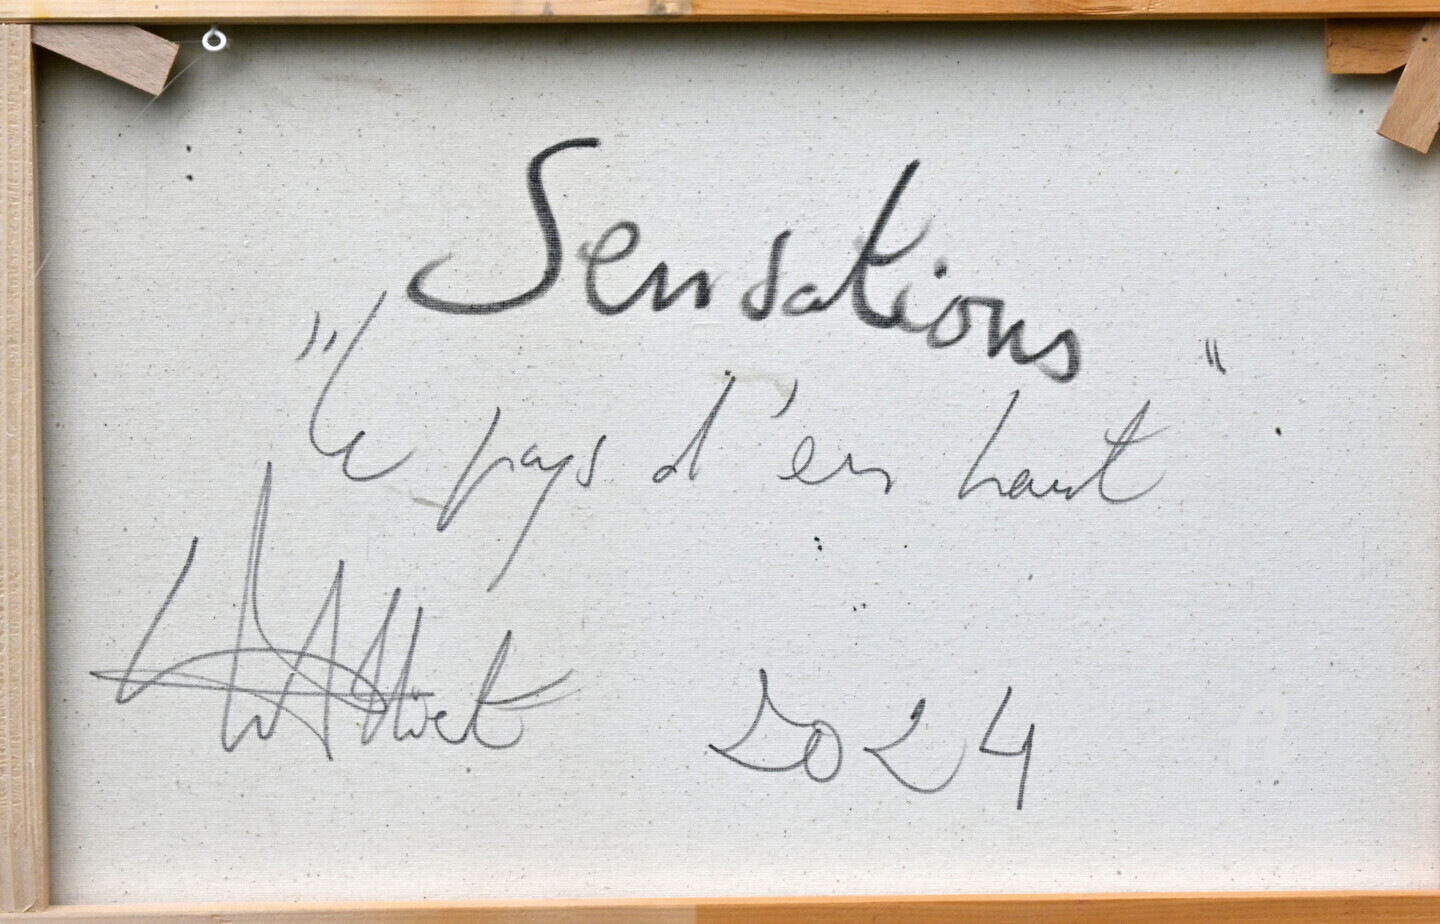 Sensations
"le pays d'en haut"
2024